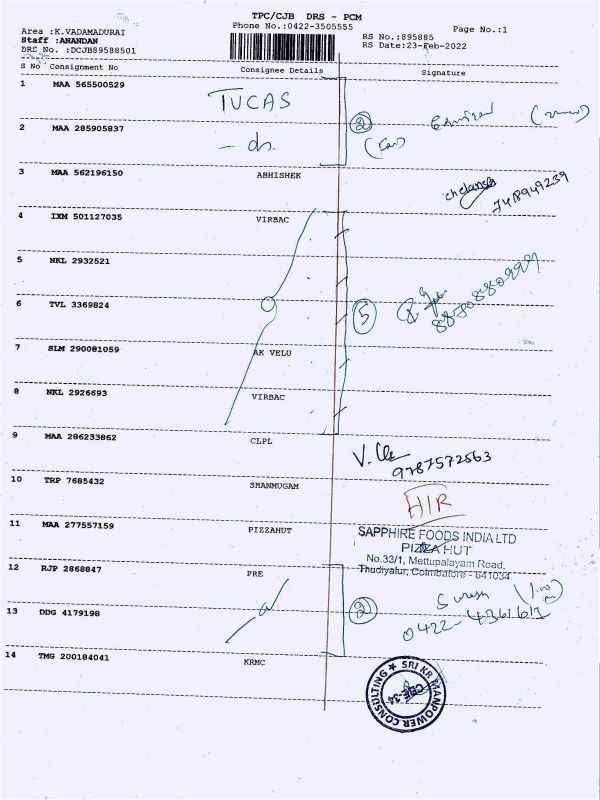 TPC/CJB DRS - PCM
Phone No.:0422-3505555
Page No.:1
Area :K.VADAMADURAI
Staff :ANANDAN
DRS No. :DCJB89588501
RS No.:895885
RS Date:23-Feb-2022
S No Consignment No Consignee Details Signature
1 MAA 565500529
TUCAS
2 MAA 285905837
②
3 MAA 562196150 ABHISHEK
4 IXM 501127035 VIRBAC
5 NKL 2932521
6 TVL 3369824
⑤
7 SLM 290081059 AK VELU
8 NKL 2926693 VIRBAC
9 MAA 286233862 CLPL
9787572563
10 TRP 7685432 SMANMUGAM
11 MAA 277557159 PIZZAHUT
SAPPHIRE FOODS INDIA LTD
PIZZA HUT
No.33/1, Mettupalayam Road,
Thudiyalur, Coimbatore - 641034
12 RJP 2868847 PRE
Suresh
13 DDG 4179198
②
14 TMG 200184041 KRMC
SRI KR MANPOWER CONSULTING
CBE-34